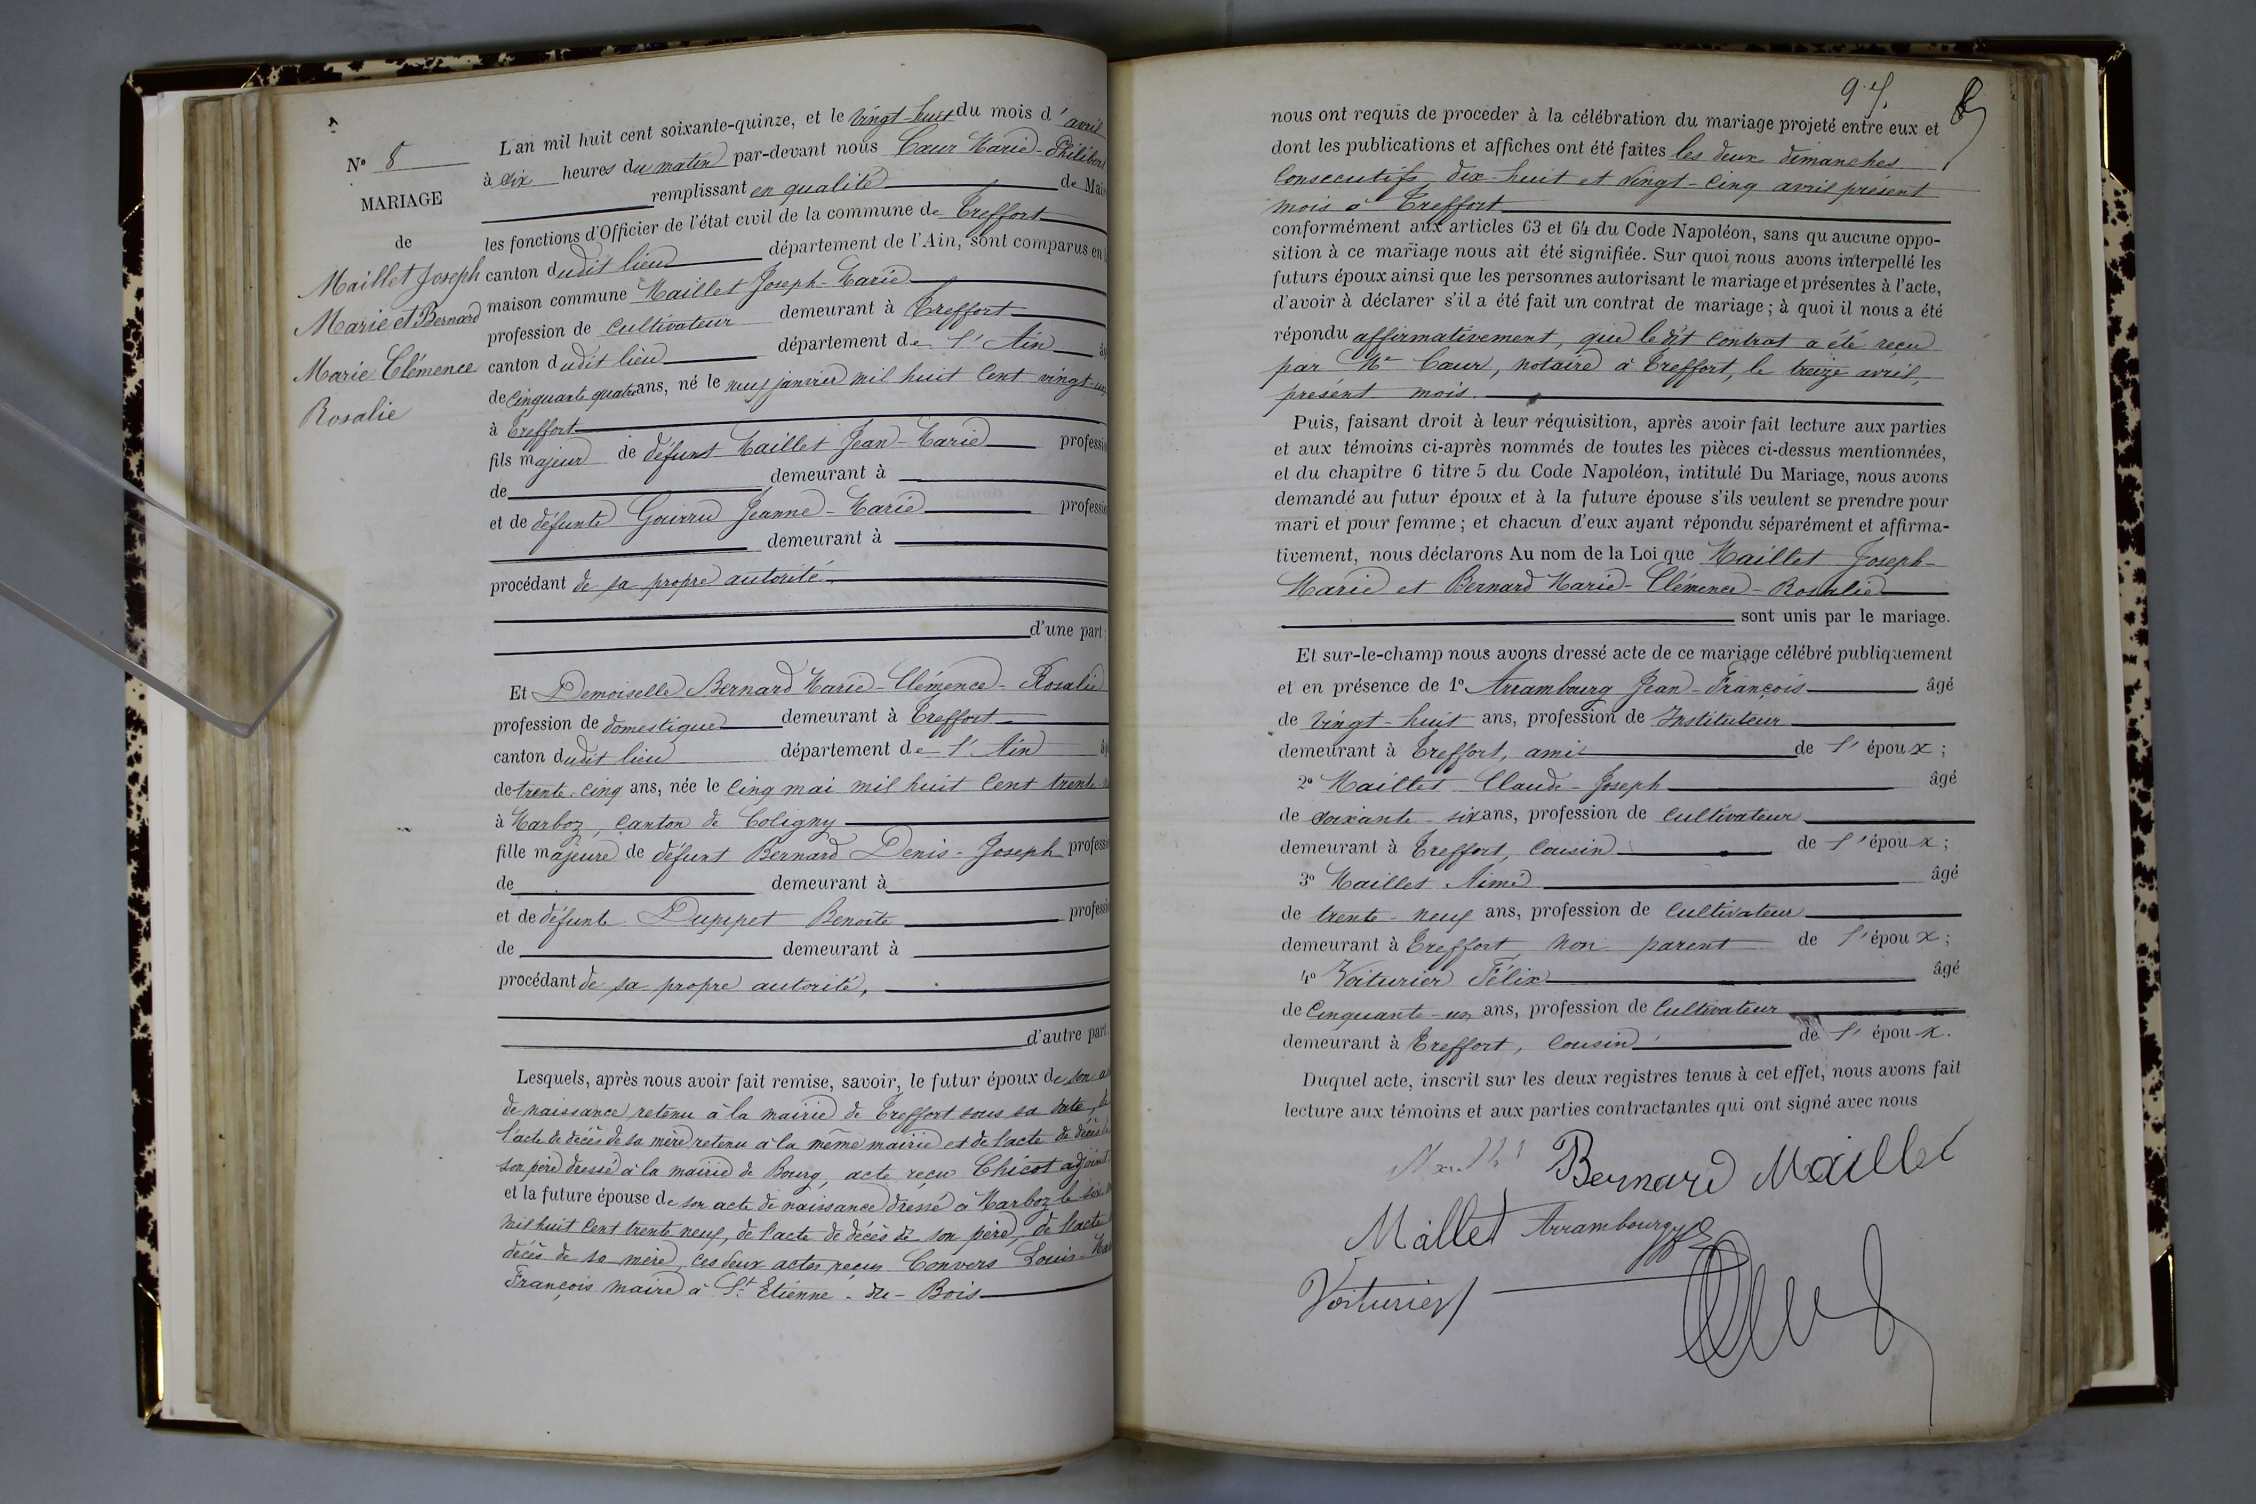 N° 8
MARIAGE
de
Maillet Joseph
Marie et Bernard
Marie Clémence
Rosalie
L'an mil huit cent soixante-quinze, et le vingt-huit du mois d'avril
à six heures du matin par-devant nous Cœur Marie-Philibert
remplissant en qualité de Mai
les fonctions d'Officier de l'état civil de la commune de Treffort
canton dudit lieu département de l'Ain, sont comparus en
maison commune Maillet Joseph-Marie
profession de cultivateur demeurant à Treffort
canton dudit lieu département de l'Ain
de cinquante quatre ans, né le neuf janvier mil huit cent vingt-un
à Treffort
fils majeur de défunt Maillet Jean-Marie professio
de demeurant à
et de défunte Jeanne-Marie professio
demeurant à
procédant de sa propre autorité
d'une part
Et Demoiselle Bernard Marie-Clémence-Rosalie
profession de domestique demeurant à Treffort
canton dudit lieu département de l'Ain
de trente-cinq ans, née le cinq mai mil huit cent trente
à Marboz, canton de Coligny
fille majeure de défunt Bernard Denis-Joseph professi
de demeurant à
et de défunte Duppet Benoite professi
de demeurant à
procédant de sa propre autorité,
d'autre part
Lesquels, après nous avoir fait remise, savoir, le futur époux de son
de naissance retenu à la mairie de Treffort sous sa date, de
l'acte de décès de sa mère retenu à la même mairie et de l'acte de décès
son père dressé à la mairie de Bourg, acte reçu Chicot adjoint
et la future épouse de son acte de naissance dressé à Marboz le six
mil huit cent trente neuf, de l'acte de décès de son père, de l'acte
décès de sa mère, ces deux actes reçus Convers Louis
François maire à St Etienne-du-Bois
97.
nous ont requis de procéder à la célébration du mariage projeté entre eux et
dont les publications et affiches ont été faites les deux dimanches
consécutifs dix-huit et vingt-cinq avril présent
mois à Treffort
conformément aux articles 63 et 64 du Code Napoléon, sans qu'aucune oppo-
sition à ce mariage nous ait été signifiée. Sur quoi nous avons interpellé les
futurs époux ainsi que les personnes autorisant le mariage et présentes à l'acte,
d'avoir à déclarer s'il a été fait un contrat de mariage; à quoi il nous a été
répondu affirmativement, que ledit contrat a été reçu
par Me Cœur, notaire à Treffort, le treize avril,
présent mois.
Puis, faisant droit à leur réquisition, après avoir fait lecture aux parties
et aux témoins ci-après nommés de toutes les pièces ci-dessus mentionnées,
et du chapitre 6 titre 5 du Code Napoléon, intitulé Du Mariage, nous avons
demandé au futur époux et à la future épouse s'ils veulent se prendre pour
mari et pour femme; et chacun d'eux ayant répondu séparément et affirma-
tivement, nous déclarons Au nom de la Loi que Maillet Joseph-
Marie et Bernard Marie-Clémence-Rosalie
sont unis par le mariage.
Et sur-le-champ nous avons dressé acte de ce mariage célébré publiquement
et en présence de 1° Arrambourg Jean-François âgé
de vingt-huit ans, profession de Instituteur
demeurant à Treffort, ami de l'époux;
2° Maillet Claude-Joseph âgé
de soixante-six ans, profession de cultivateur
demeurant à Treffort, cousin de l'époux;
3° Maillet Aimé âgé
de trente-neuf ans, profession de cultivateur
demeurant à Treffort non parent de l'époux;
4° Voiturier Félix âgé
de cinquante-un ans, profession de cultivateur
demeurant à Treffort, cousin de l'époux.
Duquel acte, inscrit sur les deux registres tenus à cet effet, nous avons fait
lecture aux témoins et aux parties contractantes qui ont signé avec nous
Bernard Maillet
Mallet Arrambourg
Voiturier